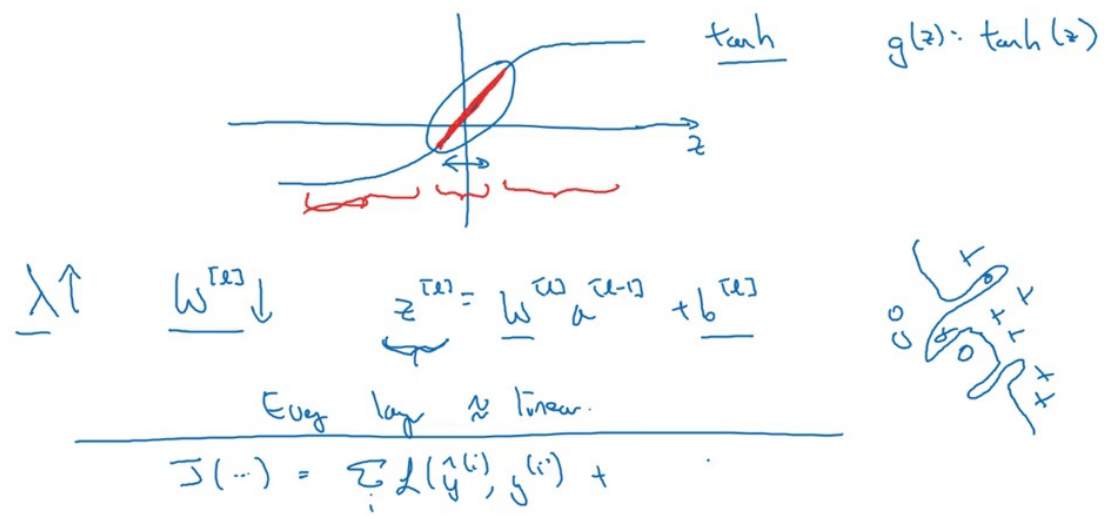 tanh g(z) = tanh(z)
z
λ↑ W^[l]↓ z^[l] = W^[l] a^[l-1] + b^[l]
Every layer ≈ linear.
J(...) = Σ_i L(ŷ^(i), y^(i)) +